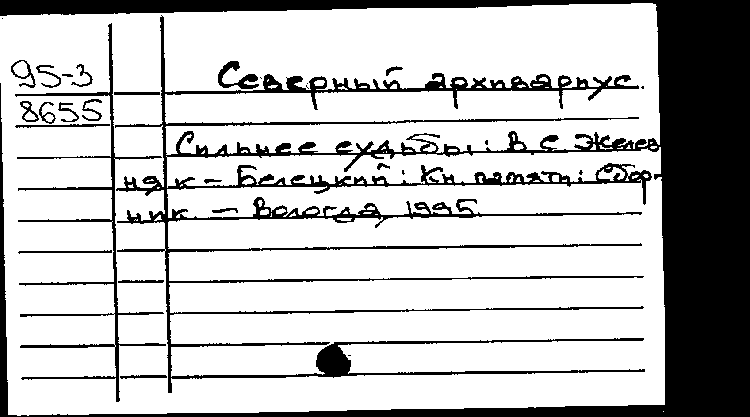 95-3
8655
Северный архивариус.
Сильнее судьбы: В. С. Желез
няк - Белецкий: Кн. памяти: Сбор-
ник. - Вологда, 1995.